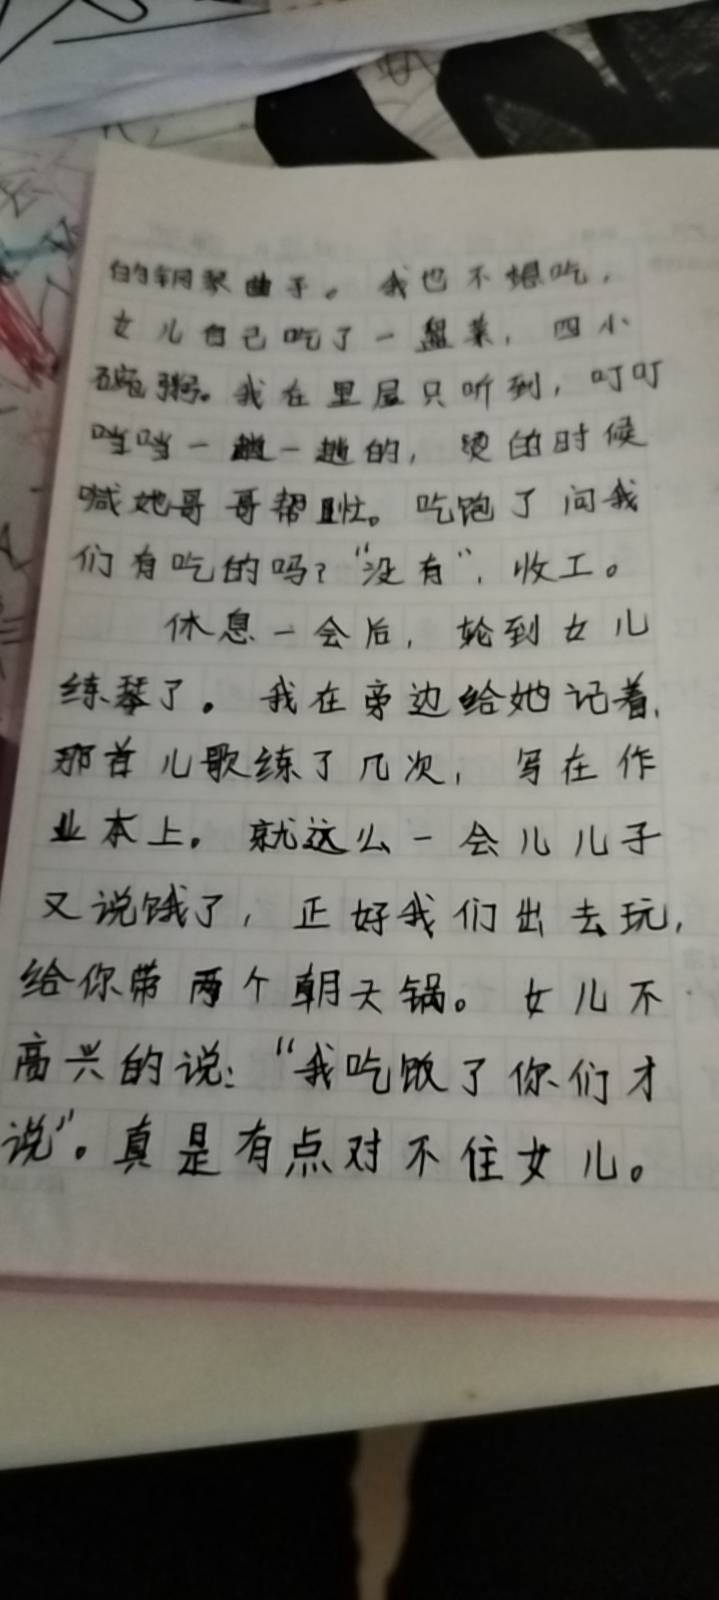 的钢琴曲子。我也不想吃，
女儿自己吃了一盘菜，四小
碗粥。我在里屋只听到，叮叮
当当一趟一趟的，烫的时候
喊她哥哥帮忙。吃饱了问我
们有吃的吗？“没有”，收工。
休息一会后，轮到女儿
练琴了。我在旁边给她记着，
那首儿歌练了几次，写在作
业本上。就这么一会儿儿子
又说饿了，正好我们出去玩，
给你带两个朝天锅。女儿不
高兴的说：“我吃饭了你们才
说”。真是有点对不住女儿。